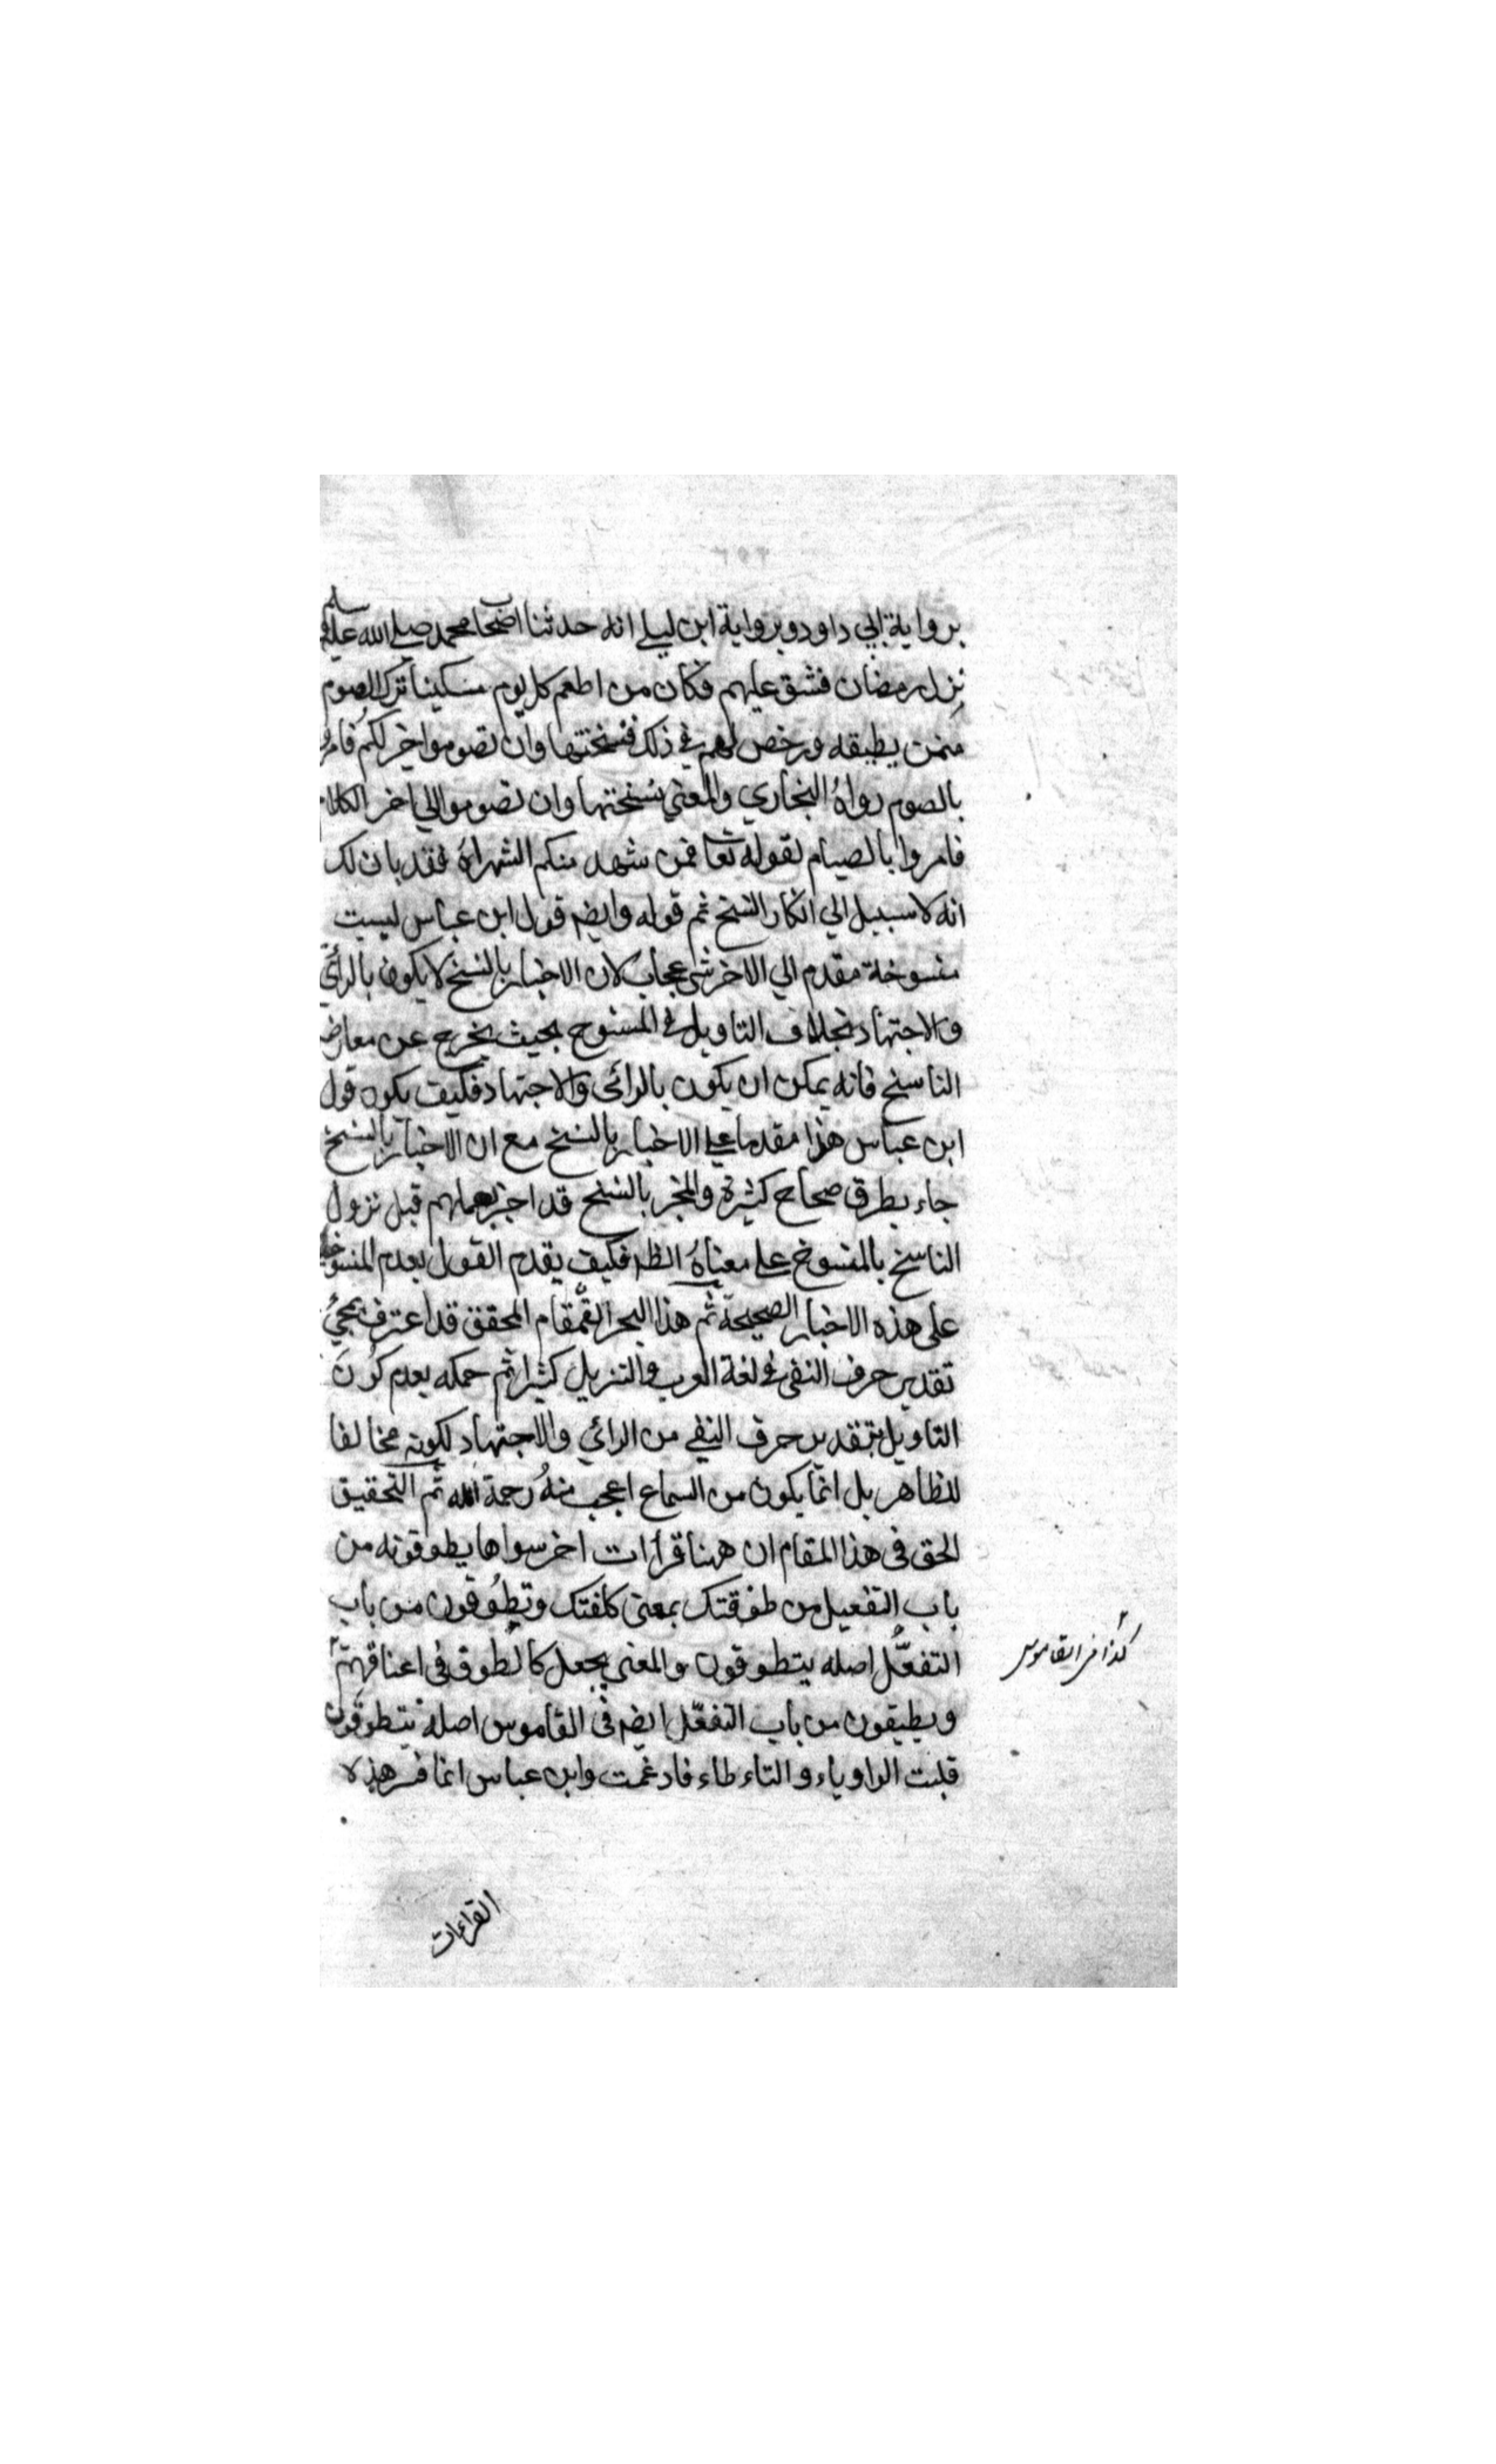 برواية ابي داود وبرواية ابن ليلى انه حدثنا اصحاب محمد صلى الله عليه وسلم
نزل رمضان فشق عليهم فكان من اطعم كل يوم مسكينا ترك الصوم
ممن يطيقه ورخص لهم في ذلك فنسختها وان تصوموا خير لكم فامروا
بالصوم رواه البخاري والمعنى نسختها وان تصوموا الي اخر الكلام
فامروا بالصيام لقوله تعا فمن شهد منكم الشهر اه فقد بان لك
انه لا سبيل الي انكار النسخ ثم قوله وايضر قول ابن عباس ليست
منسوخة مقدم الي الاخر شئ عجاب لان الاخبار بالنسخ لا يكون بالرائ
والاجتهاد بخلاف التاويل في المنسوخ بحيث يخرج عن معارضة
الناسخ فانه يمكن ان يكون بالرائ والاجتهاد فكيف يكون قول
ابن عباس هذا مقدما على الاخبار بالنسخ مع ان الاخبار بالنسخ
جاء بطرق صحاح كثيرة والمخبر بالنسخ قد اخبر بعملهم قبل نزول
الناسخ بالمنسوخ على معناه الظر فكيف يقدم القول بعدم المنسوخية
على هذه الاخبار الصحيحة ثم هذا البحر القمقام المحقق قد اعترف بمجئ
تقدير حرف النفي في لغة العرب والتنزيل كثيرا ثم حكمه بعدم كون
التاويل بتقدير حرف النفي من الرائي والاجتهاد لكونه مخالفا
للظاهر بل انما يكون من السماع اعجب منه رحمة الله ثم التحقيق
الحق في هذا المقام ان ههنا قراات اخر سواها يطوقونه من
باب التفعيل من طوقتك بمعنى كلفتك وتطوقون من باب
التفعل اصله يتطوقون والمعنى يجعل كالطوق في اعناقهم
ويطيقون من باب التفعل ايضر في القاموس اصله يتطوقون
قلبت الواو ياء والتاء طاء فادغمت وابن عباس انما فسر هذه
كذا في القاموس
القراءات